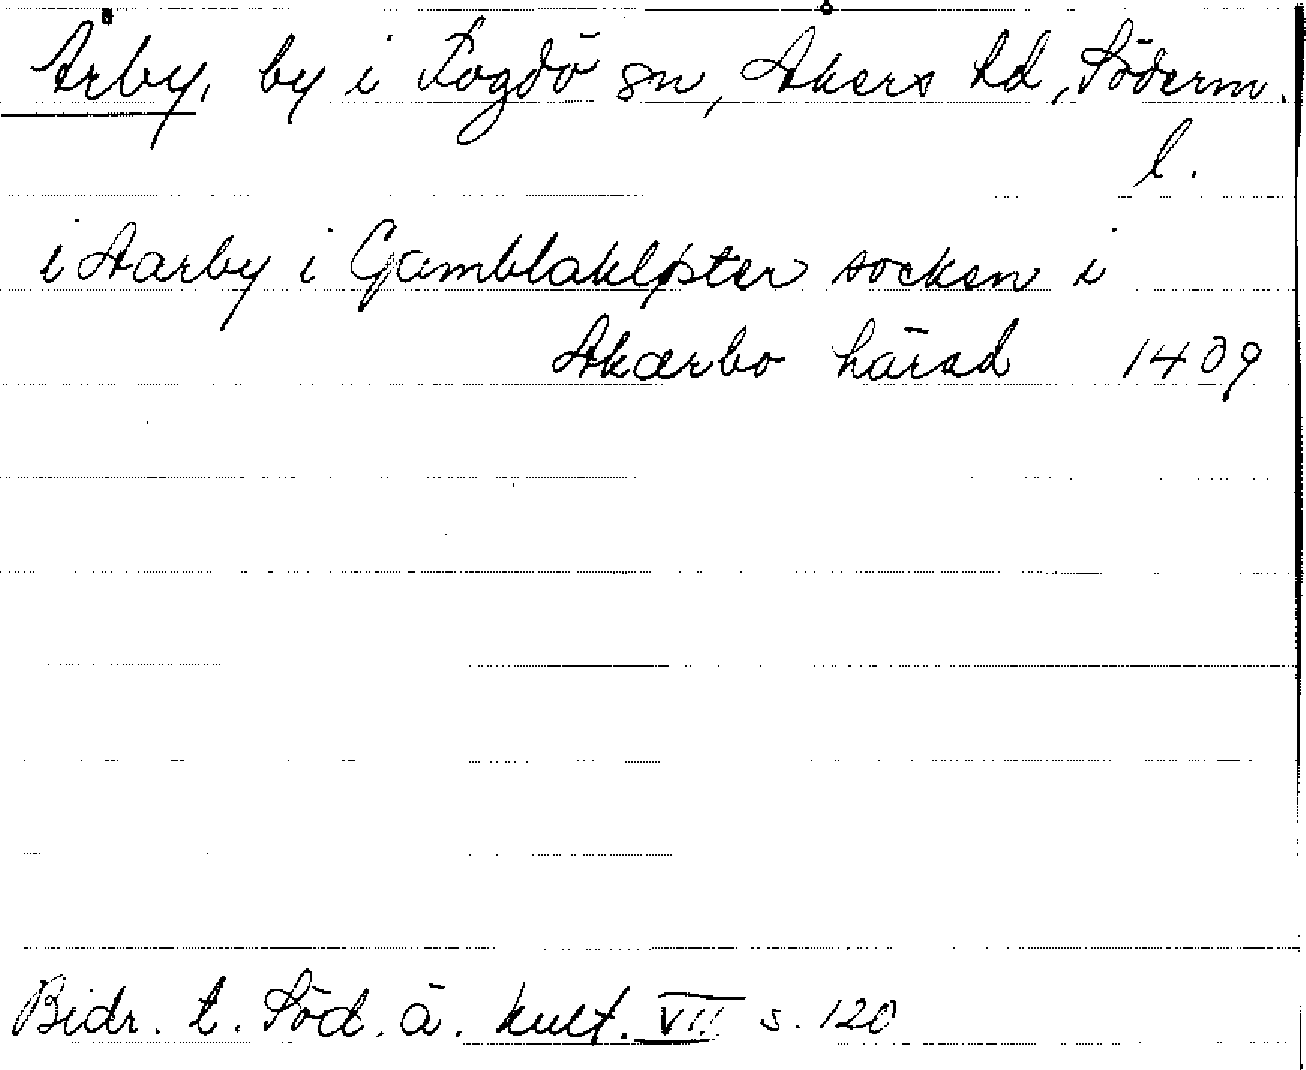 Årby, by i Fogdö sn, Åkers hd, Söderm.
l.
i Aarby i Gamblakloster socken i
Akærbo härad 1409
Bidr. t. Söd. ä. kult. VII s. 120